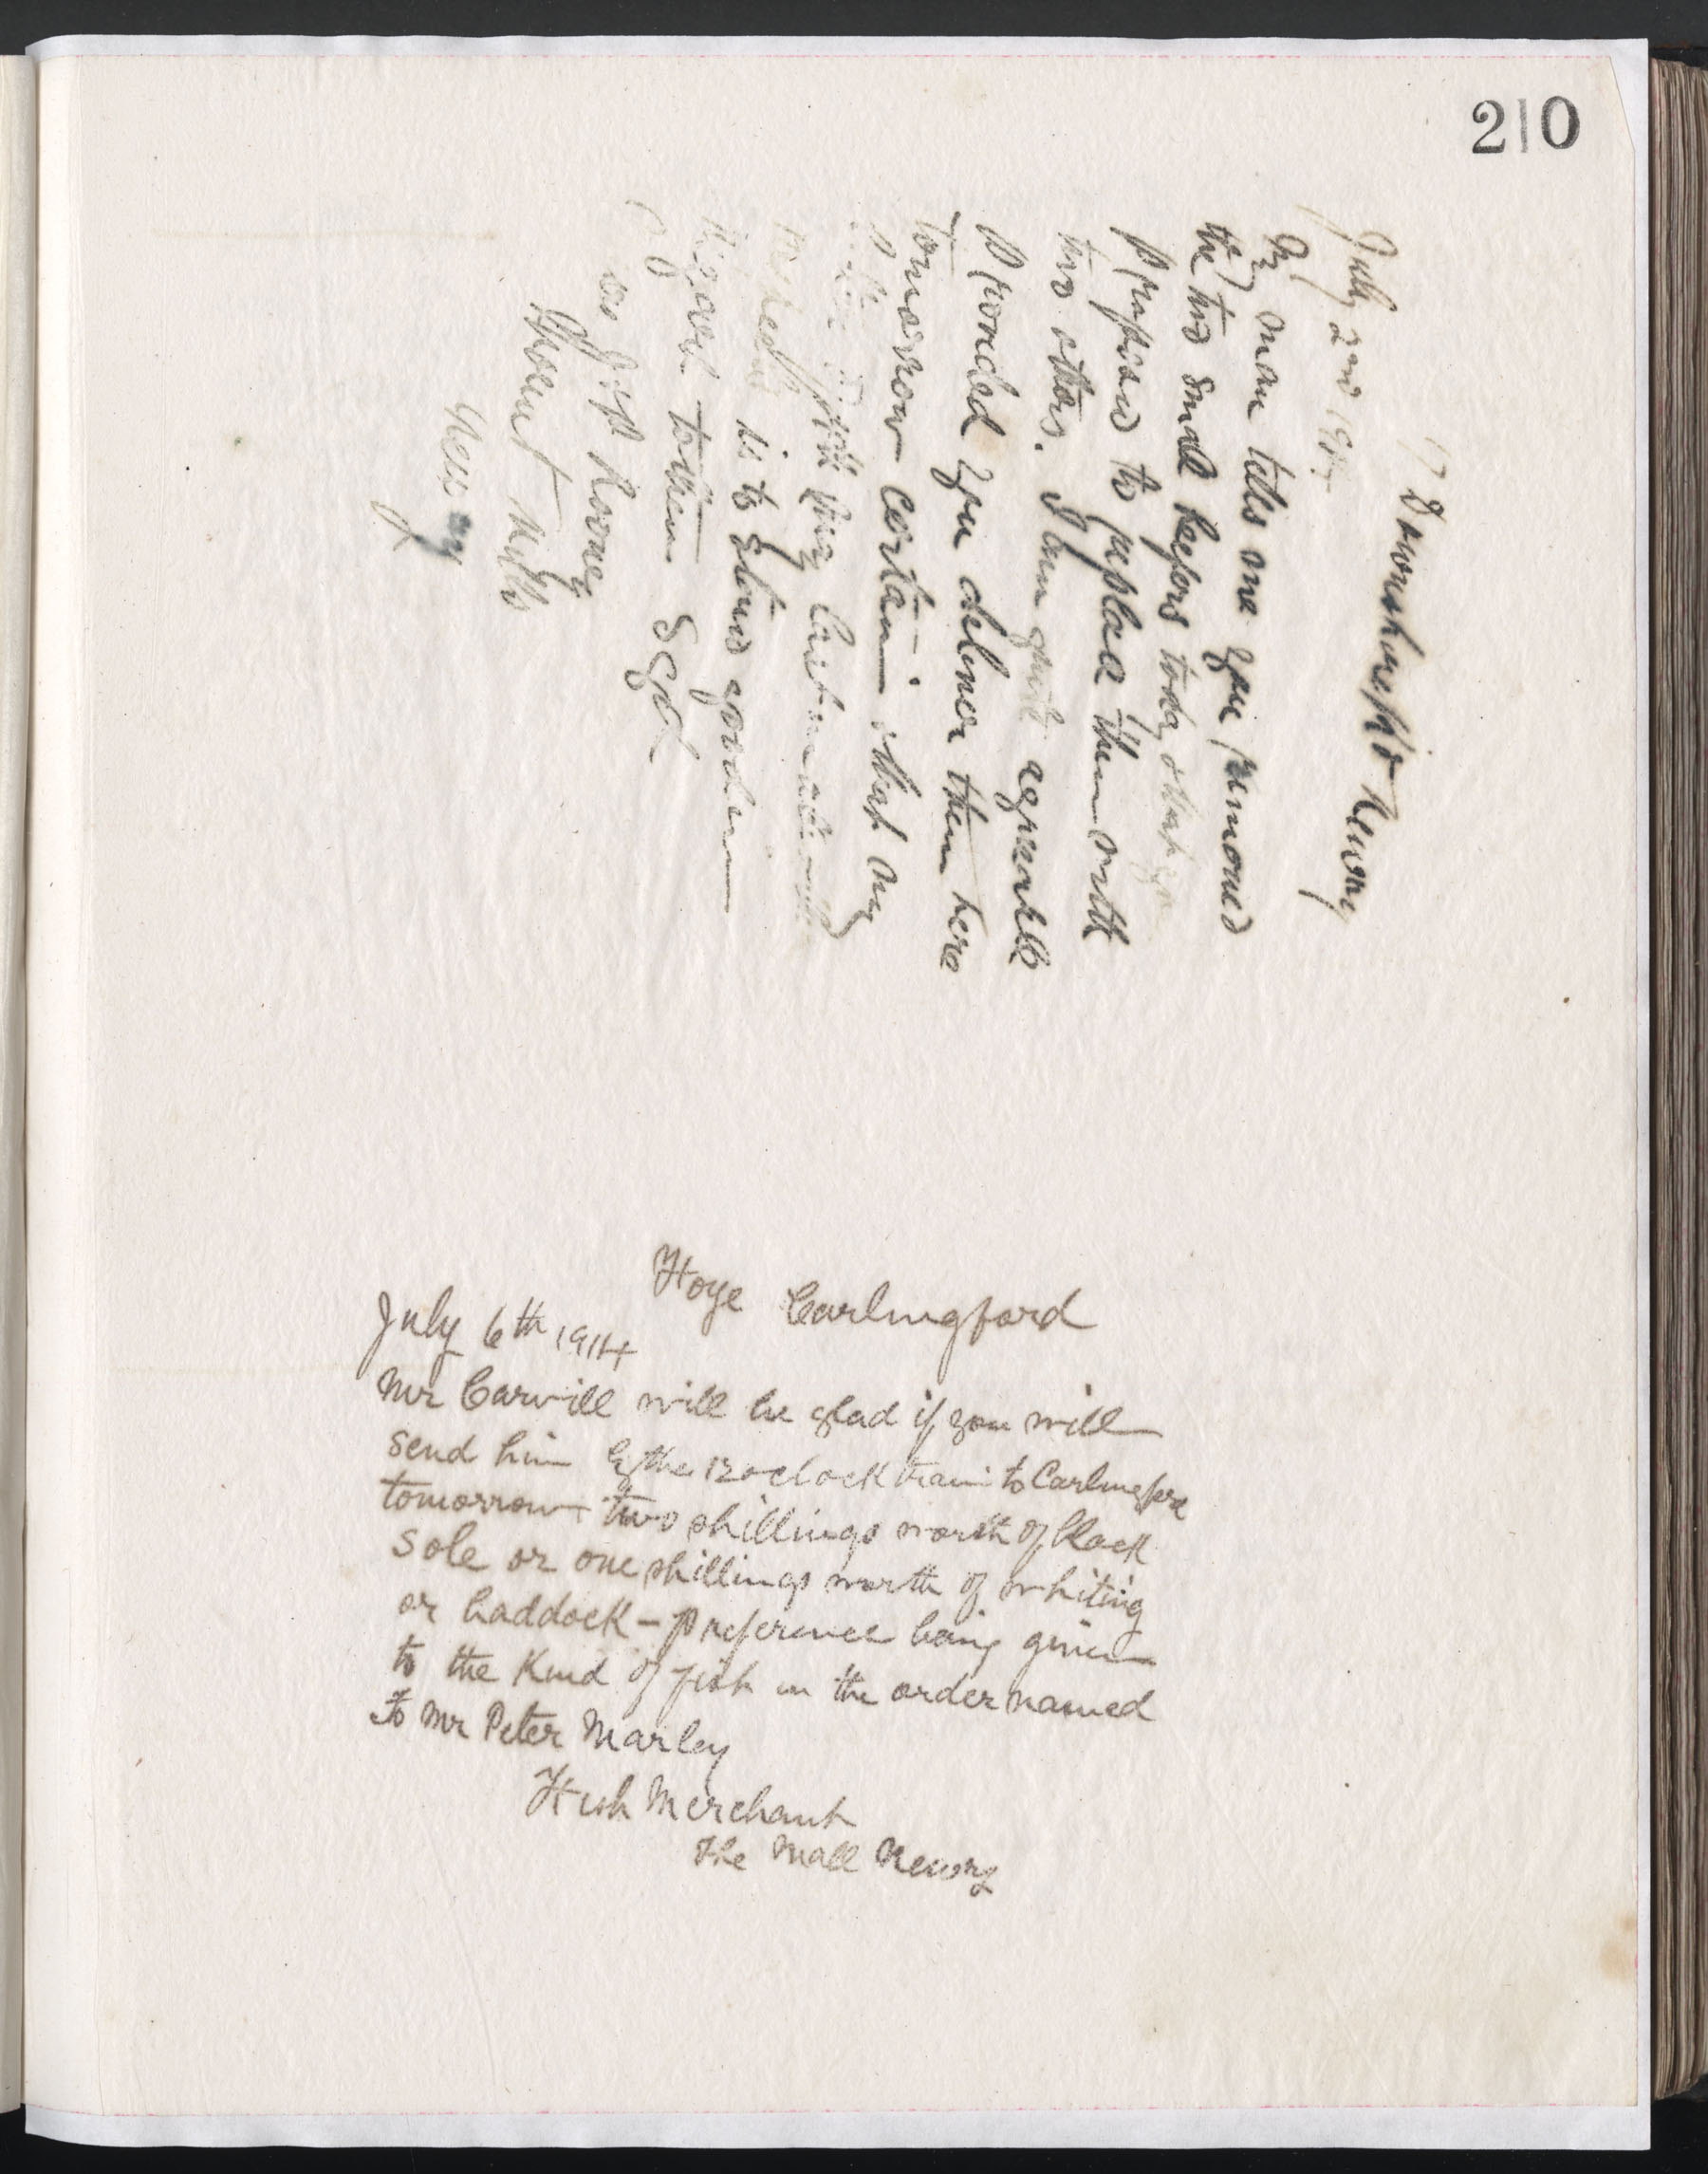 210
17 Downshire Rd Newry
July 2nd 1914
My man tells me you removed
the two small keepers today & that you
proposed to replace them with
two others. I am quite agreeable
provided you deliver them here
tomorrow certain: that my
is to
regard to them Sgd
Jos Rooney
Mills
Newry
Foye Carlingford
July 6th 1914
Mr Carvill will be glad if you will
send him by the 12 oclock train to Carlingford
tomorrow two shillings worth of black
sole or one shillings worth of whiting
or haddock - preference being given
to the kind of fish in the order named
To Mr Peter Marley
Fish Merchant
The Mall Newry